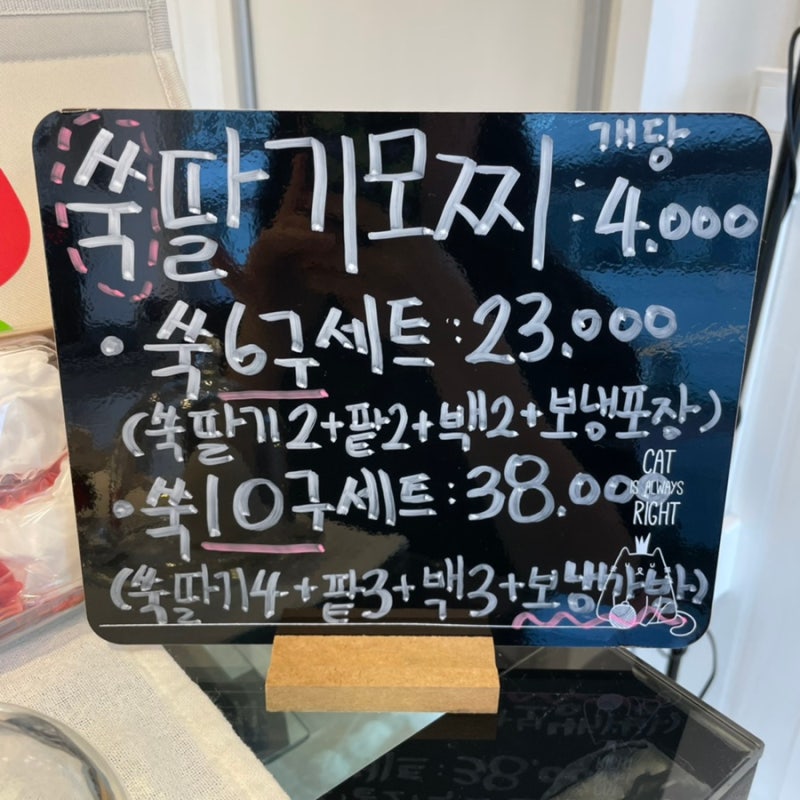 개당
쑥딸기모찌 : 4.000
• 쑥6구세트 : 23.000
(쑥딸기2+팥2+백2+보냉포장)
• 쑥10구세트 : 38.000
(쑥딸기4+팥3+백3+보냉가방)
CAT
IS ALWAYS
RIGHT